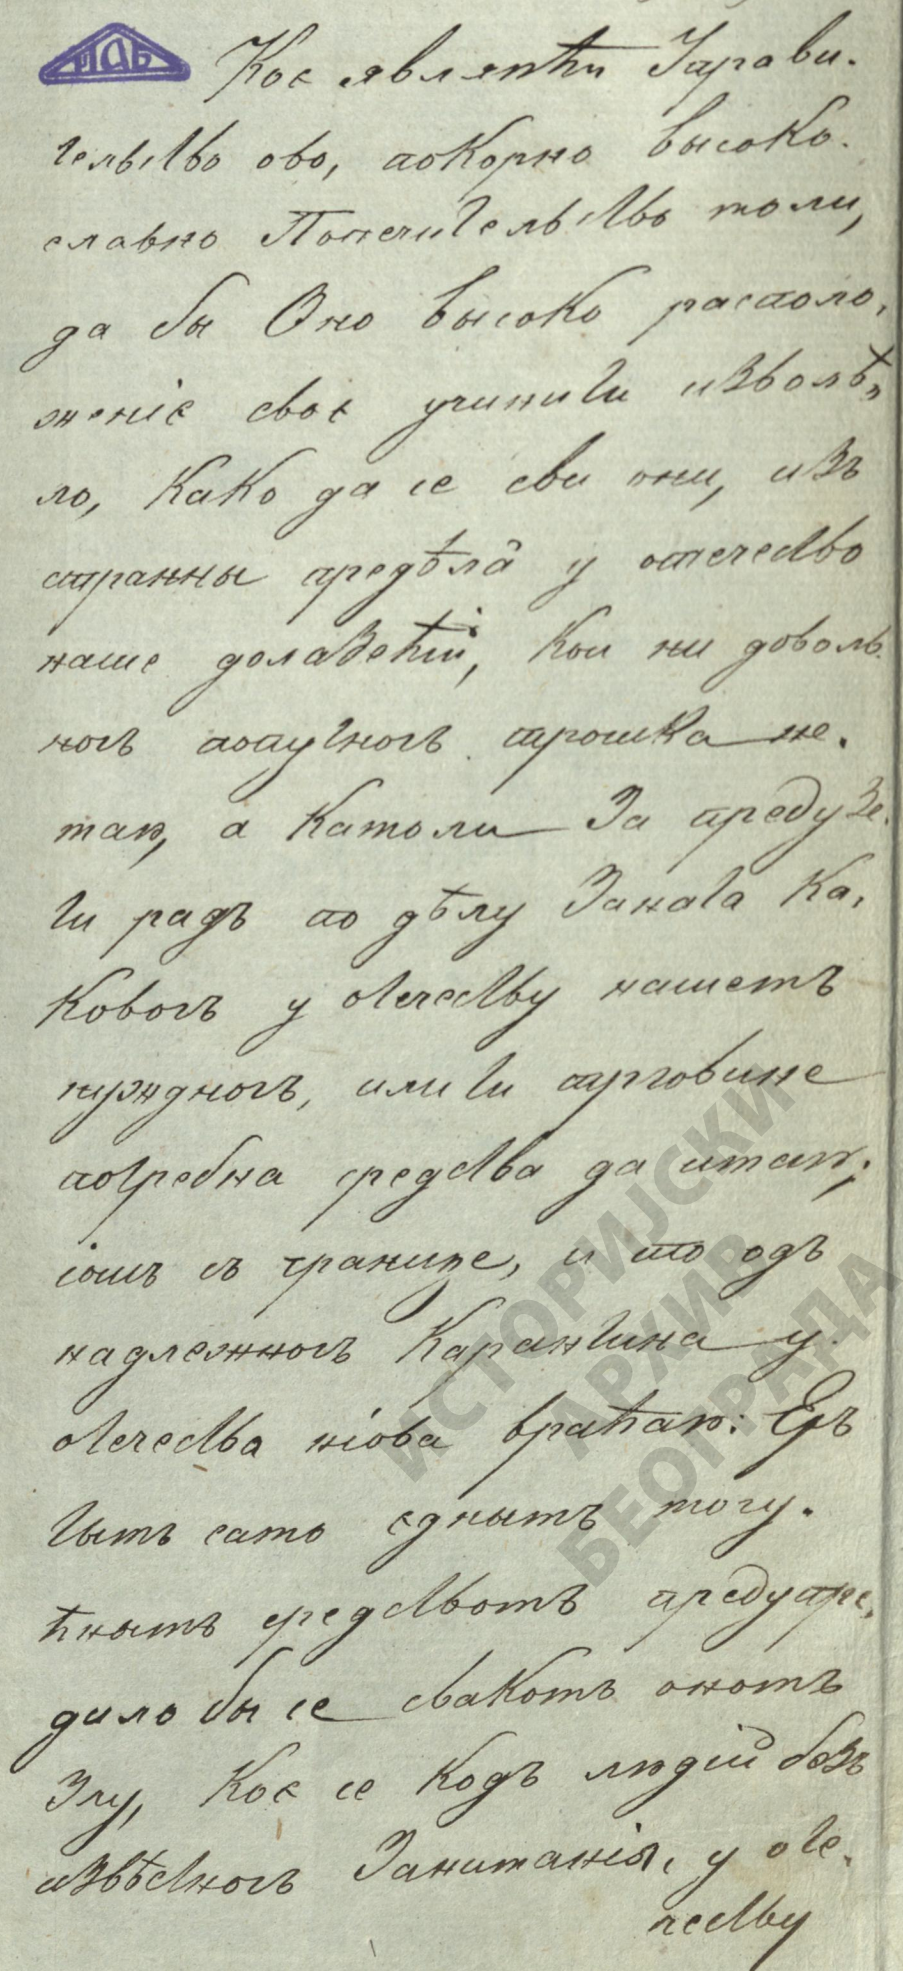 ИАБ
Кое являюћи Управи-
телство ово, покорно высоко-
славно Попечителство моли,
да бы Оно высоко располо-
женіе свое учинити изволѣ-
ло, како да се сви они, изъ
страны предѣла у отечество
наше долазећіи, кои ни доволь-
ногъ попутногъ трошка не-
маю, а камоли за предузе-
ти радъ по дѣлу заната ка-
ковогъ у отечеству нашемъ
нуждногъ, или ти трговине
потребна средства да имаю,
іошъ съ границе, и то одъ
надлежногъ Карантина у
отечества ніова враћаю: Еръ
тымъ само еднымъ могу-
ћнымъ средствомъ предупре-
дило бы се свакомъ ономъ
злу, кое се кодъ людій безъ
извѣстногъ занимания, у оте-
честву
ИСТОРИЈСКИ
АРХИВ
БЕОГРАДА